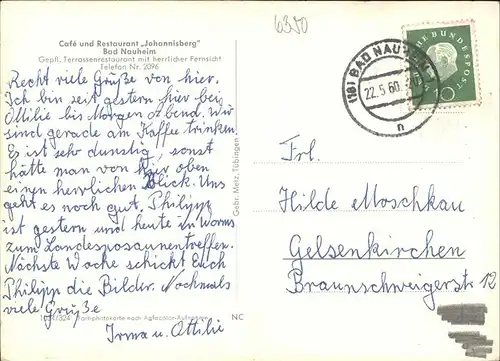 6350
Café und Restaurant „Johannisberg"
Bad Nauheim
Gepfl. Terrassenrestaurant mit herrlicher Fernsicht
Telefon Nr. 2096
Recht viele Grüße von hier.
Ich bin seit gestern hier bei
Ottilie bis Morgen Abend. Wir
sind gerade am Kaffee trinken.
Es ist sehr dunstig, sonst
hätte man von hier oben
einen herrlichen Blick. Uns
geht es noch gut. Philipp
ist gestern und heute in Worms
zum Landesposaunentreffen.
Nächste Woche schickt Euch
Philipp die Bilder. Nochmals
viele Grüße
Irma u. Ottilie
1034/324 Part-photokarte nach Agfacolor-Aufnahmen NC
Gebr. Metz, Tübingen
(16) BAD NAUHEIM
22.5.60
n
DEUTSCHE BUNDESPOST
10
Frl.
Hilde Moschkau
Gelsenkirchen
Braunschweigerstr 12